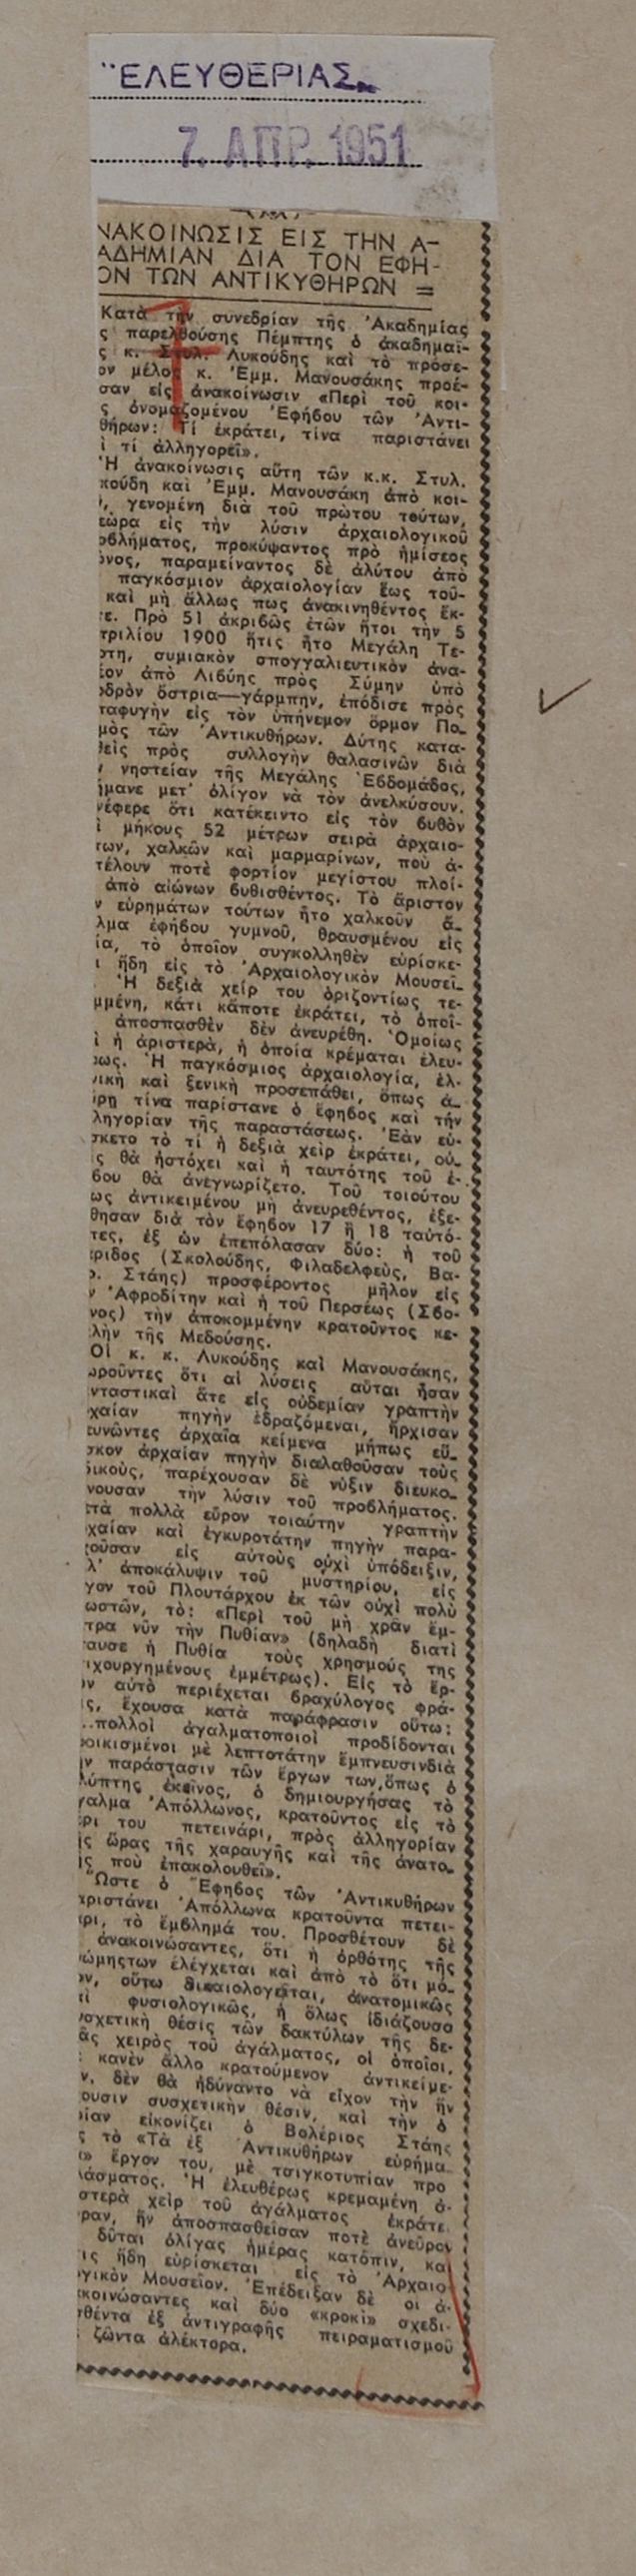 "ΕΛΕΥΘΕΡΙΑΣ
7. ΑΠΡ. 1951
ΝΑΚΟΙΝΩΣΙΣ ΕΙΣ ΤΗΝ Α-
ΑΔΗΜΙΑΝ ΔΙΑ ΤΟΝ ΕΦΗ-
ΟΝ ΤΩΝ ΑΝΤΙΚΥΘΗΡΩΝ =
Κατὰ τὴν συνεδρίαν τῆς Ἀκαδημίας
ς παρελθούσης Πέμπτης ὁ ἀκαδημαϊ-
ς κ. Στυλ. Λυκούδης καὶ τὸ πρόσε-
ον μέλος κ. Ἐμμ. Μανουσάκης προέ-
σαν εἰς ἀνακοίνωσιν «Περὶ τοῦ κοι-
ς ὀνομαζομένου Ἐφήβου τῶν Ἀντι-
θήρων: Τί ἐκράτει, τίνα παριστάνει
ὶ τί ἀλληγορεῖ».
Ἡ ἀνακοίνωσις αὕτη τῶν κ.κ. Στυλ.
κούδη καὶ Ἐμμ. Μανουσάκη ἀπὸ κοι-
, γενομένη διὰ τοῦ πρώτου τούτων,
εώρα εἰς τὴν λύσιν ἀρχαιολογικοῦ
οβλήματος, προκύψαντος πρὸ ἡμίσεος
ῶνος, παραμείναντος δὲ ἀλύτου ἀπὸ
παγκόσμιον ἀρχαιολογίαν ἕως τοῦ-
καὶ μὴ ἄλλως πως ἀνακινηθέντος ἔκ-
ε. Πρὸ 51 ἀκριβῶς ἐτῶν ἤτοι τὴν 5
πριλίου 1900 ἥτις ἦτο Μεγάλη Τε-
ρτη, συμιακὸν σπογγαλιευτικὸν ἀνα-
ον ἀπὸ Λιβύης πρὸς Σύμην ὑπὸ
οδρὸν ὄστρια—γάρμπην, ἐπόδισε πρὸς
ταφυγὴν εἰς τὸν ὑπήνεμον ὅρμον Πο-
μὸς τῶν Ἀντικυθήρων. Δύτης κατα-
θεὶς πρὸς συλλογὴν θαλασινῶν διὰ
ν νηστείαν τῆς Μεγάλης Ἑβδομάδος,
ήμανε μετ' ὀλίγον νὰ τὸν ἀνελκύσουν.
νέφερε ὅτι κατέκειντο εἰς τὸν βυθὸν
ὶ μήκους 52 μέτρων σειρὰ ἀρχαιο-
των, χαλκῶν καὶ μαρμαρίνων, ποὺ ἀ-
τέλουν ποτὲ φορτίον μεγίστου πλοί-
ἀπὸ αἰώνων βυθισθέντος. Τὸ ἄριστον
ν εὑρημάτων τούτων ἦτο χαλκοῦν ἄ-
λμα ἐφήβου γυμνοῦ, θραυσμένου εἰς
ία, τὸ ὁποῖον συγκολληθὲν εὑρίσκε-
ι ἤδη εἰς τὸ Ἀρχαιολογικὸν Μουσεῖ-
. Ἡ δεξιὰ χείρ του ὁριζοντίως τε-
μμένη, κάτι κάποτε ἐκράτει, τὸ ὁποῖ-
ἀποσπασθὲν δὲν ἀνευρέθη. Ὁμοίως
ὶ ἡ ἀριστερά, ἡ ὁποία κρέμαται ἐλευ-
ρως. Ἡ παγκόσμιος ἀρχαιολογία, ἑλ-
νικὴ καὶ ξενικὴ προσεπάθει, ὅπως ἀ-
ύρῃ τίνα παρίστανε ὁ ἔφηβος καὶ τὴν
ληγορίαν τῆς παραστάσεως. Ἐὰν εὑ-
σκετο τὸ τί ἡ δεξιὰ χεὶρ ἐκράτει, οὐ-
ς θὰ ἠστόχει καὶ ἡ ταυτότης τοῦ ἐ-
βου θὰ ἀνεγνωρίζετο. Τοῦ τοιούτου
ως ἀντικειμένου μὴ ἀνευρεθέντος, ἐξε-
θησαν διὰ τὸν ἔφηβον 17 ἢ 18 ταὐτό-
τες, ἐξ ὧν ἐπεπόλασαν δύο: ἡ τοῦ
ριδος (Σκολούδης, Φιλαδελφεὺς, Βα-
ρ. Στάης) προσφέροντος μῆλον εἰς
ν Ἀφροδίτην καὶ ἡ τοῦ Περσέως (Σβο-
νος) τὴν ἀποκομμένην κρατοῦντος κε-
λὴν τῆς Μεδούσης.
Οἱ κ. κ. Λυκούδης καὶ Μανουσάκης,
ωροῦντες ὅτι αἱ λύσεις αὗται ἦσαν
νταστικαὶ ἅτε εἰς οὐδεμίαν γραπτὴν
χαίαν πηγὴν ἑδραζόμεναι, ἤρχισαν
ευνῶντες ἀρχαῖα κείμενα μήπως εὕ-
σκον ἀρχαίαν πηγὴν διαλαθοῦσαν τοὺς
δικοὺς, παρέχουσαν δὲ νύξιν διευκο-
νουσαν τὴν λύσιν τοῦ προβλήματος.
ετὰ πολλὰ εὗρον τοιαύτην γραπτὴν
χαίαν καὶ ἐγκυροτάτην πηγὴν παρα-
χοῦσαν εἰς αὐτοὺς οὐχὶ ὑπόδειξιν,
λ' ἀποκάλυψιν τοῦ μυστηρίου, εἰς
γον τοῦ Πλουτάρχου ἐκ τῶν οὐχὶ πολὺ
ωστῶν, τὸ: «Περὶ τοῦ μὴ χρᾶν ἔμ-
τρα νῦν τὴν Πυθίαν» (δηλαδὴ διατὶ
παυσε ἡ Πυθία τοὺς χρησμούς της
ιχουργημένους ἐμμέτρως). Εἰς τὸ ἔρ-
ν αὐτὸ περιέχεται βραχύλογος φρά-
ς, ἔχουσα κατὰ παράφρασιν οὕτω:
..πολλοὶ ἀγαλματοποιοὶ προδίδονται
ροικισμένοι μὲ λεπτοτάτην ἔμπνευσινδιὰ
ν παράστασιν τῶν ἔργων των,ὅπως ὁ
λύπτης ἐκεῖνος, ὁ δημιουργήσας τὸ
γαλμα Ἀπόλλωνος, κρατοῦντος εἰς τὸ
ρι του πετεινάρι, πρὸς ἀλληγορίαν
ῆς ὥρας τῆς χαραυγῆς καὶ τῆς ἀνατο-
ῆς ποὺ ἐπακολουθεῖ».
Ὥστε ὁ Ἔφηβος τῶν Ἀντικυθήρων
αριστάνει Ἀπόλλωνα κρατοῦντα πετει-
άρι, τὸ ἔμβλημά του. Προσθέτουν δὲ
ἀνακοινώσαντες, ὅτι ἡ ὀρθότης τῆς
νώμηςτων ἐλέγχεται καὶ ἀπὸ τὸ ὅτι μό-
ον, οὕτω δικαιολογεῖται, ἀνατομικῶς
αὶ φυσιολογικῶς, ἡ ὅλως ἰδιάζουσα
υσχετικὴ θέσις τῶν δακτύλων τῆς δε-
ᾶς χειρὸς τοῦ ἀγάλματος, οἱ ὁποῖοι,
κανὲν ἄλλο κρατούμενον ἀντικείμε-
ν, δὲν θὰ ἠδύναντο νὰ εἶχον τὴν ἣν
ουσιν συσχετικὴν θέσιν, καὶ τὴν ὁ
οίαν εἰκονίζει ὁ Βολέριος Στάης
ς τὸ «Τὰ ἐξ Ἀντικυθήρων εὑρήμα-
» ἔργον του, μὲ τσιγκοτυπίαν προ
λάσματος. Ἡ ἐλευθέρως κρεμαμένη ἀ-
στερὰ χεὶρ τοῦ ἀγάλματος ἐκράτε
ραν, ἣν ἀποσπασθεῖσαν ποτὲ ἀνεῦρον
δῦται ὀλίγας ἡμέρας κατόπιν, κα
ις ἤδη εὑρίσκεται εἰς τὸ Ἀρχαιο
γικὸν Μουσεῖον. Ἐπέδειξαν δὲ οἱ ἀ-
κοινώσαντες καὶ δύο «κροκὶ» σχεδι-
θέντα ἐξ ἀντιγραφῆς πειραματισμοῦ
ζῶντα ἀλέκτορα.